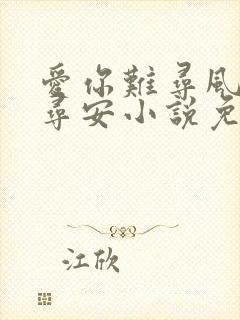 愛你難尋風
尋安小說免
江欣